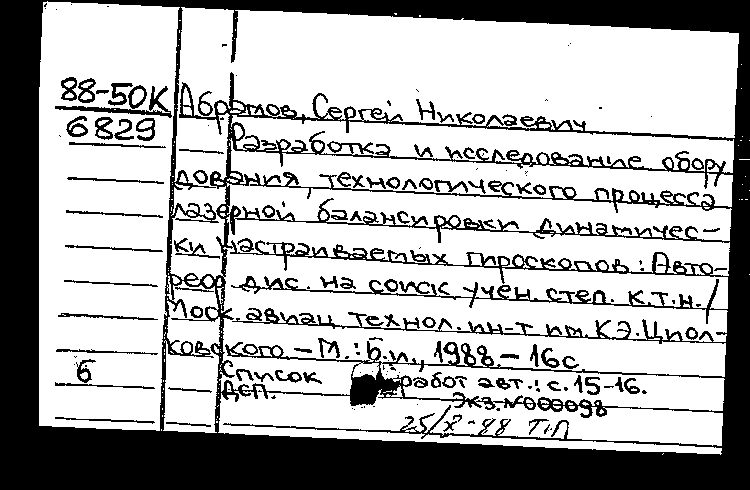 88-50К Абрамов, Сергей Николаевич
6829 Разработка и исследование обору
дования, технологического процесса
лазерной балансировки динамичес-
ки настраиваемых гироскопов: Авто-
реф дис. на соиск учен. степ. к.т.н./
Моск. авиац технол. ин-т им. К.Э. Циол-
ковского. – М.: Б.и., 1988. – 16 с.
6 Список работ авт.: с. 15-16.
ДСП. Экз. №000098
25/X-88